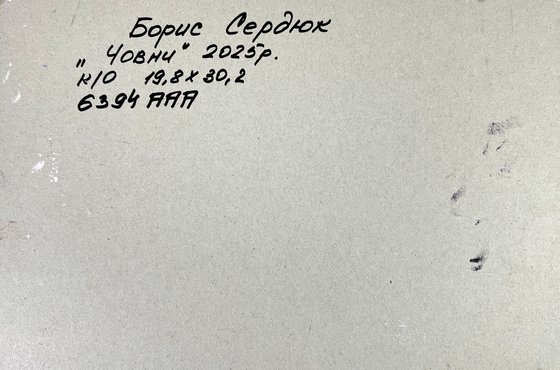 Борис Сердюк
„Човни" 2025р.
к/о 19,8 х 30,2
6394 ААА